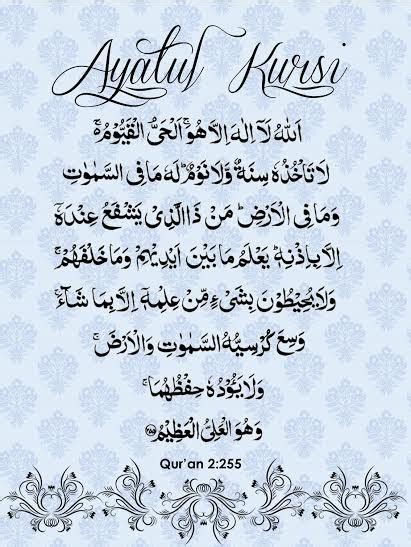 Ayatul Kursi
اَللّٰهُ لَآ اِلٰهَ اِلَّا هُوَۚ اَلْحَیُّ الْقَیُّوْمُ۬ۚ
لَا تَاْخُذُهٗ سِنَةٌ وَّلَا نَوْمٌؕ لَهٗ مَا فِی السَّمٰوٰتِ
وَمَا فِی الْاَرْضِؕ مَنْ ذَا الَّذِیْ یَشْفَعُ عِنْدَهٗۤ
اِلَّا بِاِذْنِهٖؕ یَعْلَمُ مَا بَیْنَ اَیْدِیْهِمْ وَمَا خَلْفَهُمْۚ
وَلَا یُحِیْطُوْنَ بِشَیْءٍ مِّنْ عِلْمِهٖۤ اِلَّا بِمَا شَآءَۚ
وَسِعَ كُرْسِیُّهُ السَّمٰوٰتِ وَالْاَرْضَۚ
وَلَا یَـُٔوْدُهٗ حِفْظُهُمَاۚ
وَهُوَ الْعَلِیُّ الْعَظِیْمُ ۝۲۵۵
Qur'an 2:255